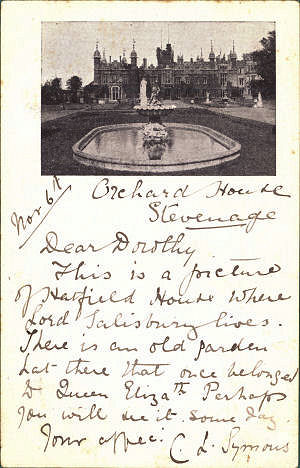 Nov 6th
Orchard House
Stevenage
Dear Dorothy
This is a picture
of Hatfield House where
Lord Salisbury lives.
There is an old garden
hat there that once belonged
to Queen Elizath Perhaps
you will see it some day.
Your affec: C L Symons